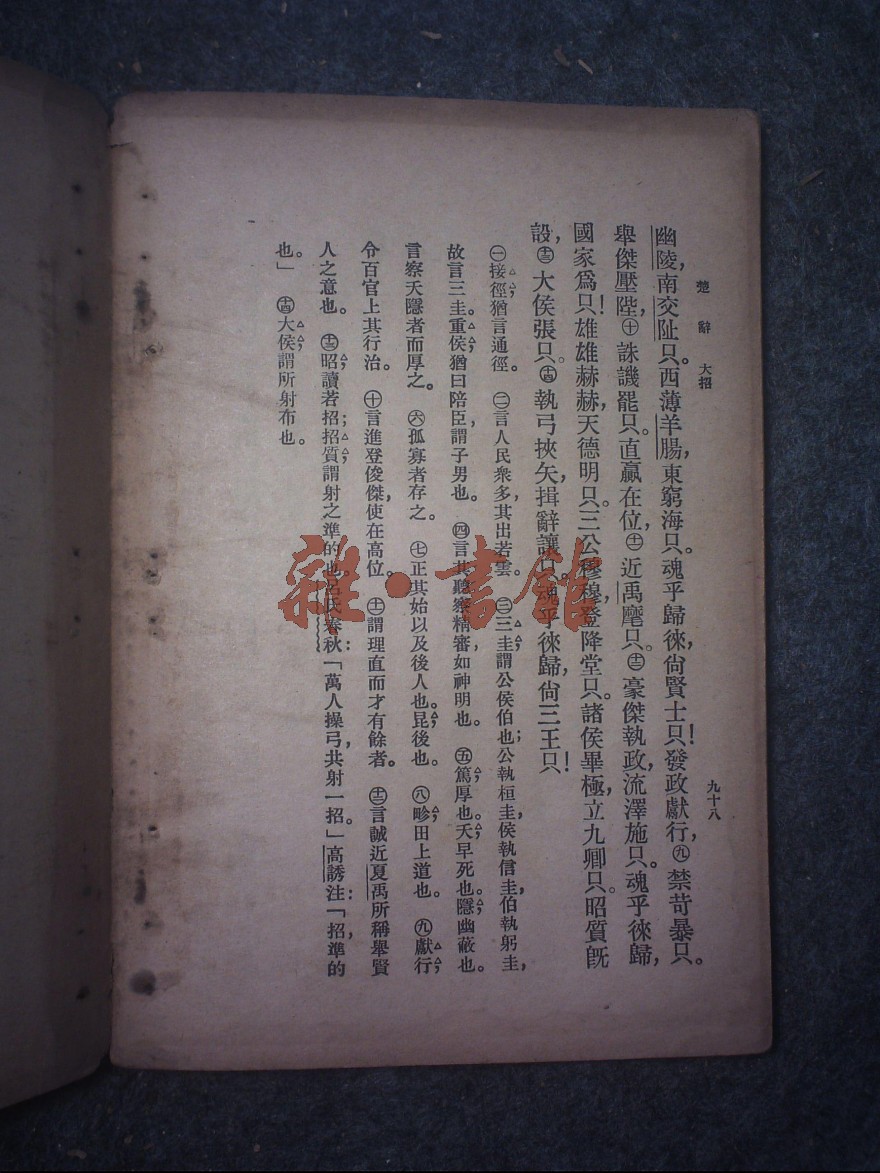 楚辭　大招
九十八
幽陵，南交阯只。西薄羊腸，東窮海只。魂乎歸徠，尙賢士只！發政獻行，㊈禁苛暴只。
舉傑壓陛，㊉誅譏罷只。直贏在位，㊉㊀近禹麾只。㊉㊁豪傑執政，流澤施只。魂乎徠歸，
國家爲只！雄雄赫赫，天德明只。三公穆穆，登降堂只。諸侯畢極，立九卿只。昭質旣
設，㊉㊂大侯張只。㊉㊃執弓挾矢，揖辭讓只。魂乎徠歸，尙三王只！
㊀接徑，猶言通徑。　㊁言人民衆多，其出若雲。　㊂三圭，謂公侯伯也；公執桓圭，侯執信圭，伯執躬圭，
故言三圭。重侯，猶曰陪臣，謂子男也。　㊃言其聽察精審，如神明也。　㊄篤，厚也。夭，早死也。隱，幽蔽也。
言察夭隱者而厚之。　㊅孤寡者存之。　㊆正其始以及後人也。昆，後也。　㊇畛，田上道也。　㊈獻行，
令百官上其行治。　㊉言進登俊傑，使在高位。　㊉㊀謂理直而才有餘者。　㊉㊁言誠近夏禹所稱舉賢
人之意也。　㊉㊂昭讀若招；招質，謂射之準的也。呂氏春秋：「萬人操弓，共射一招。」高誘注：「招，準的
也。」　㊉㊃大侯，謂所射布也。
雜·書館